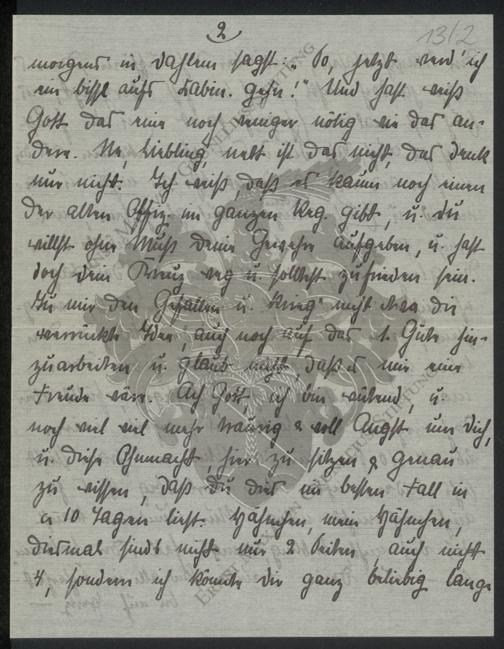 2
13/2
morgens in Dahlem sagst: "So, jetzt werd' ich
ein bissl aufs Kabin. gehn!" Und hast weiss
Gott das eine noch weniger nötig wie das an-
dere. Ne, Liebling, nett ist das nicht, das denk
nur nicht. Ich weiss dass es kaum noch einen
der alten Offiz. im ganzen Reg. gibt, u. du
willst ohne Muss deine Gewehre aufgeben, u. hast
doch dein Kreuz weg u. solltest zufrieden sein.
Tu mir den Gefallen u. krieg' nicht etwa die
verrückte Idee, auch noch auf das 1. Gute hin-
zuarbeiten u. glaub nicht dass es mir eine
Freude wäre. Ach Gott, ich bin wütend, u.
noch viel viel mehr traurig & voll Angst um dich,
u. diese Ohnmacht, hier zu sitzen & genau
zu wissen, dass Du dies im besten Fall in
a 10 Tagen liest. Hähnchen, mein Hähnchen,
diesmal sinds nicht nur 2 Seiten, auch nicht
4, sondern ich könnte dir ganz beliebig lange